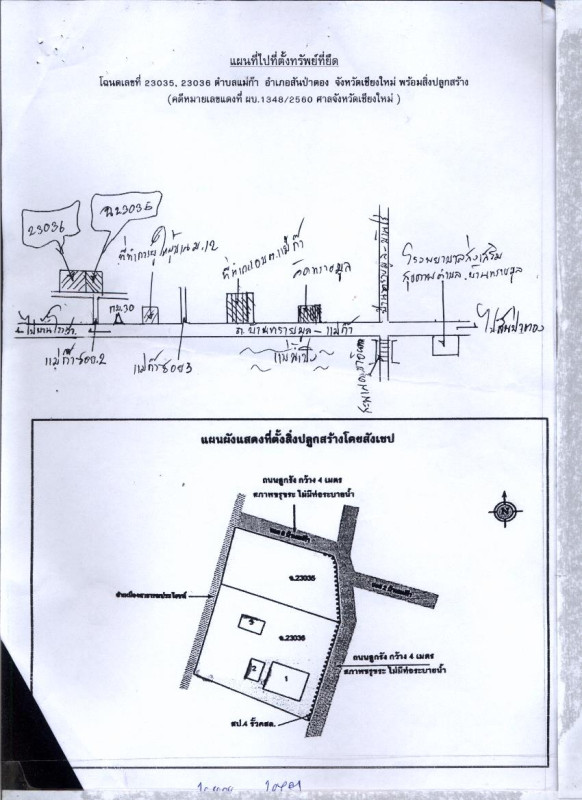 แผนที่ไปที่ตั้งทรัพย์ที่ยึด
โฉนดเลขที่ 23035, 23036 ตำบลแม่ก๊า อำเภอสันป่าตอง จังหวัดเชียงใหม่ พร้อมสิ่งปลูกสร้าง
(คดีหมายเลขแดงที่ ผบ.1348/2560 ศาลจังหวัดเชียงใหม่ )
23036
ฉ.23035
ที่ทำการผู้ใหญ่บ้าน ม.12
ที่ทำการอบต.แม่ก๊า
วัดทรายมูล
โรงพยาบาลส่งเสริม
สุขภาพตำบลบ้านทรายมูล
กม.30
ถ.บ้านทรายมูล-แม่ก๊า
ไปสันป่าตอง
แม่ก๊าซอย.2
แม่ก๊าซอย 3
แผนผังแสดงที่ตั้งสิ่งปลูกสร้างโดยสังเขป
ถนนลูกรัง กว้าง 4 เมตร
สภาพขรุขระ ไม่มีท่อระบายน้ำ
N
ฉ.23035
ลำเหมืองสาธารณประโยชน์
5
ฉ.23036
2
1
ถนนลูกรัง กว้าง 4 เมตร
สภาพขรุขระ ไม่มีท่อระบายน้ำ
สป.4 รั้วคสล.